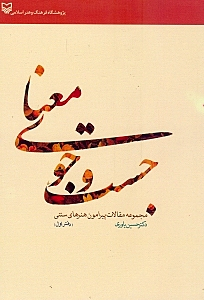 پژوهشگاه فرهنگ و هنر اسلامی
جست و جوی
معنا
مجموعه مقالات پیرامون هنرهای سنتی
دکتر حسین یاوری
(دفتر اول)